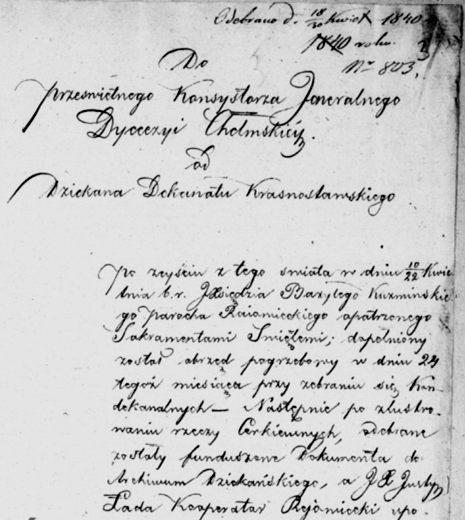 Odebrano d. 18/30 Kwiet 1840
1840 roku.
Nro 803.
Do
Prześwietnego Konsystorza Jeneralnego
Dyecezyi Chełmskiey.
od
Dziekana Dekanatu Krasnostawskiego
Po zeyściu z tego świata w dniu 10/22 Kwie
tnia b. r. JXsiędza Bazylego Kuźmińskie
go Paroch Rejowieckiego opatrzonego
Sakramentami Świętemi; dopełniony
został obrzęd pogrzebowy w dniu 24
tegoż miesiąca przy zebraniu się Kon
dekanalnych — Następnie po zlustro-
waniu rzeczy Cerkiewnych, odebrane
zostały funduszowe Dokumenta do
Archiwum Dziekańskiego, a JX Justyn
Łada Kooperator Rejowiecki upo-